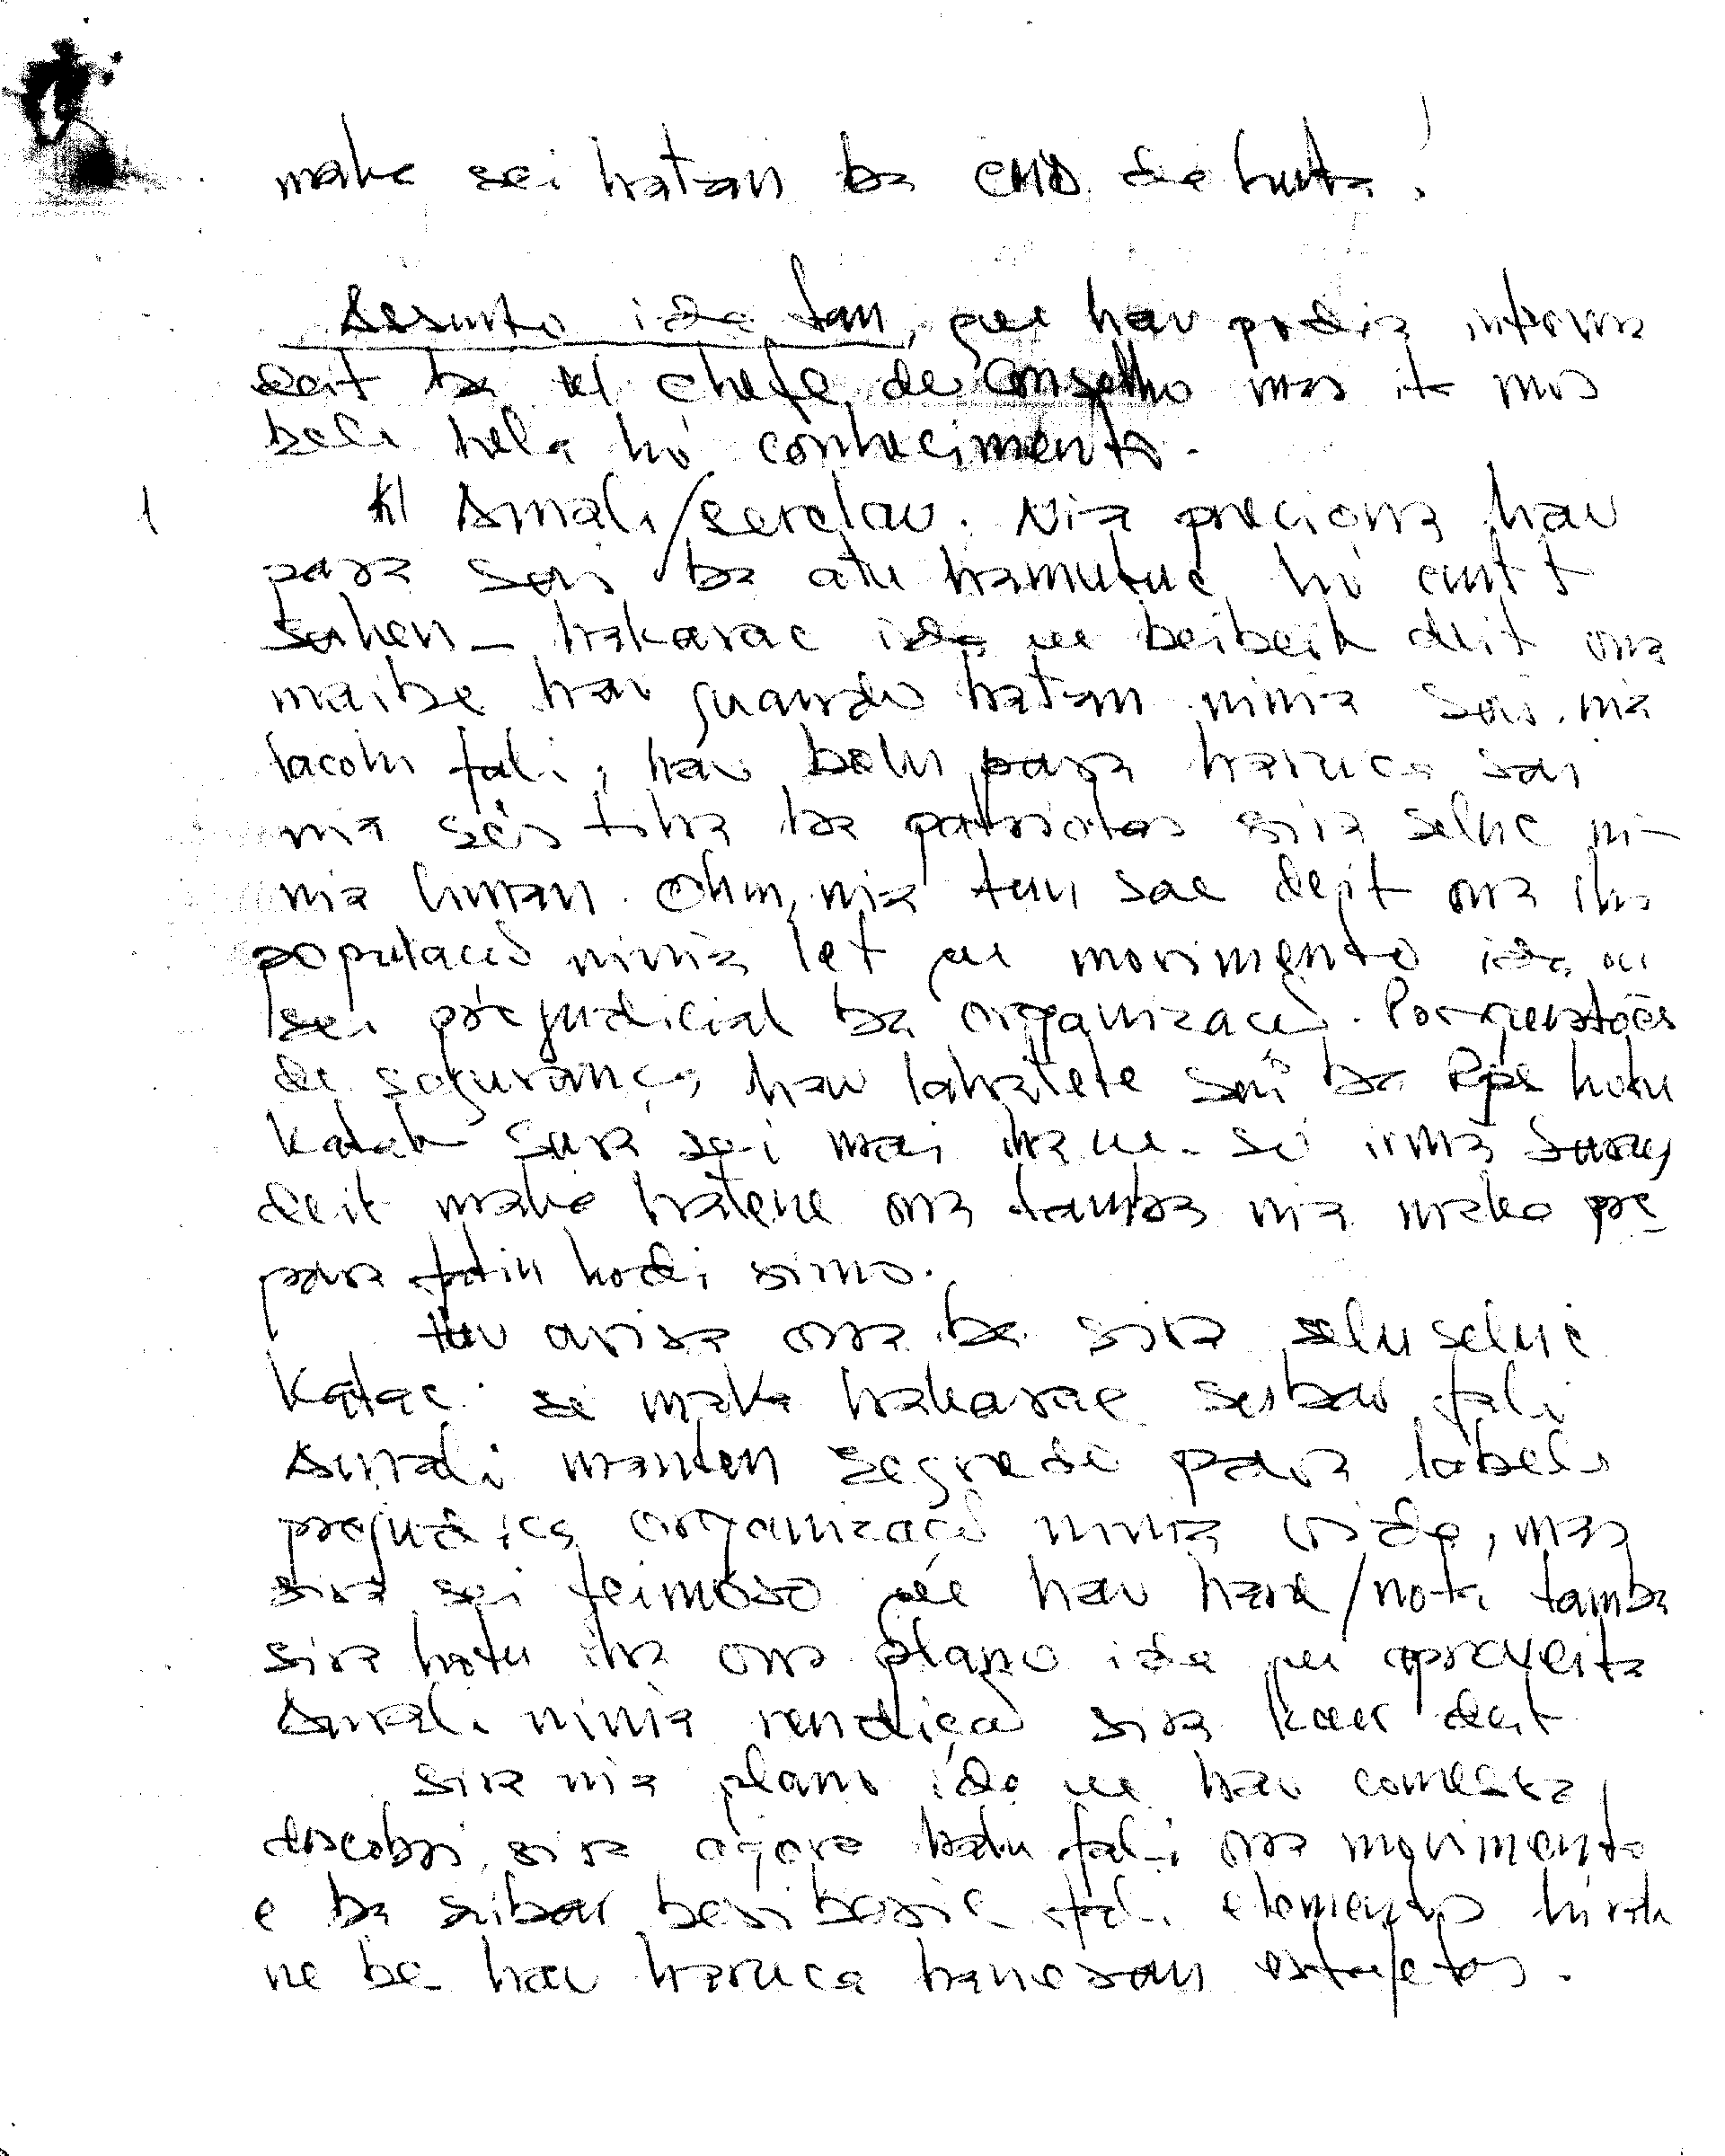 make sei hatan ba de luta.
Assunto ida tan, que hau podia informa
deit ba chefe de conselho mas ita mos
bele hela hó conhecimento.
1 Amali/ Nia preciona hau
para ba atu hamutuc hó
hakarac ida ne beibeik deit ona
maibe hau quando hatan ninia nia
lacohi fali, hau bolu para haruca
nia tiha ba patriotas sira seluc ni-
nia liman. Ohin, nia tun sae deit ona iha
populacão ninia let que movimento ida ne
sei prejudicial ba organizacão. Por questões
de segurança, hau lahatete ba hotu
katak sei mai iha ne. Só irma
deit make hatene ona tamba nia make pre
para fatin hodi simo.
Hau avisa ona ba sira seluseluc
katac se maka hakarac fali
Amali manten segredo para labele
prejudica organizacão ninia vida, mas
sira sei teimoso ne hau haré/nota tamba
sira hotu iha ona plano ida ne aproveita
Amali ninia rendiçaõ sira kaer deit
sira nia plano ida ne hau comessa
descobri, sira agora halu fali ona movimento
e ba besibesic fali elementos
ne be hau haruca hanesan estafetas.